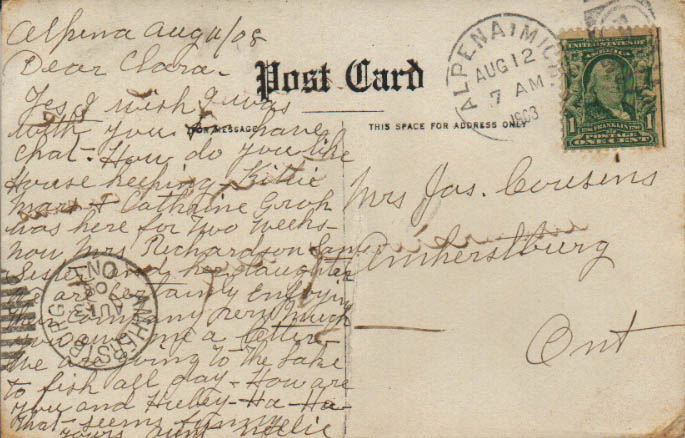 Alpena Aug 11/08
Dear Clara -
Yes I wish I was
with you to have
chat - How do you like
House keeping - Kittie
Marx & Cathrine Groh
was here for Two weeks -
now Mrs Richardson
Sister and her daughter
We are certainly Enjoying
their company very much
you me a letter -
We are going to the Lake
to fish all day - How are
you and Hubby - Ha - Ha -
that seems funny
yours Aunt Nellie
Post Card
FOR MESSAGE
THIS SPACE FOR ADDRESS ONLY
ALPENA, MICH.
AUG 12
7 AM
1908
UNITED STATES OF AMERICA
1 FRANKLIN 1
POSTAGE
ONE CENT
Mrs Jas. Cousens
Amherstburg
Ont
AMHERSTBURG ONT
AU 13
08